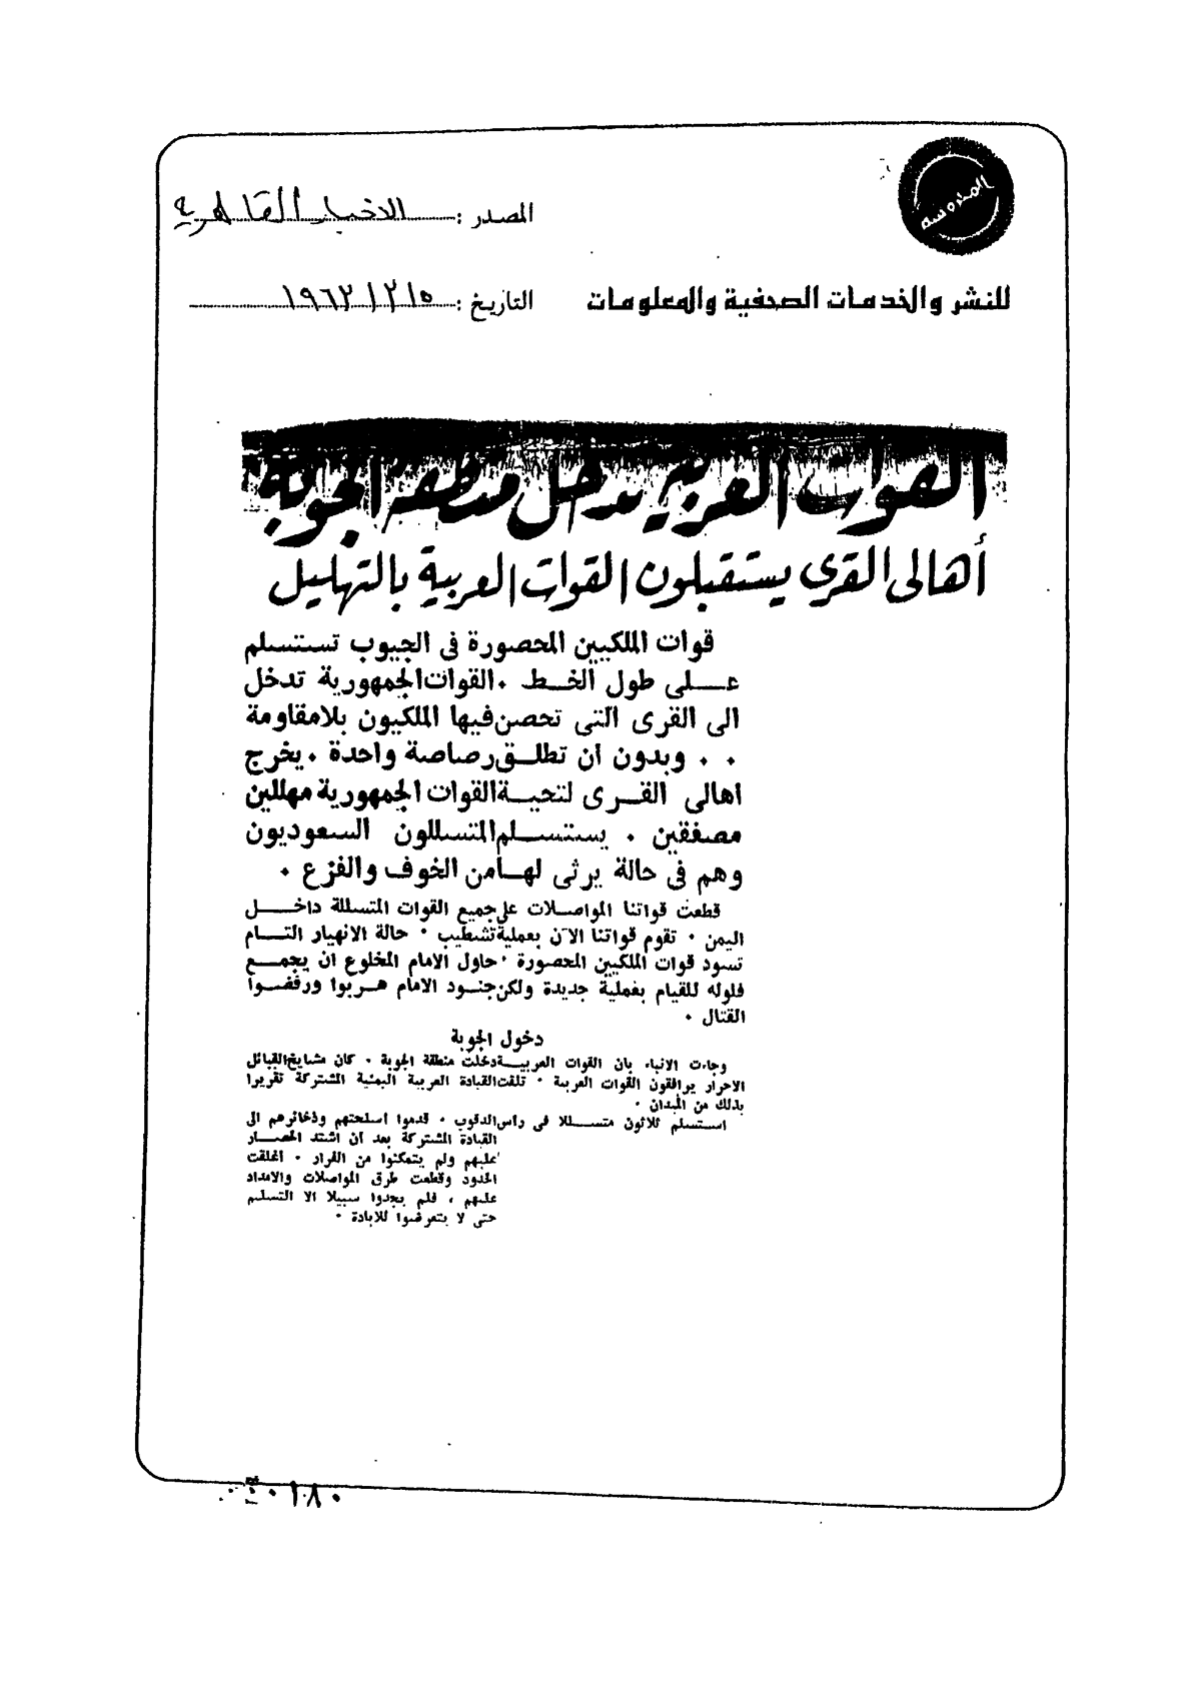 المحروسة
المصدر : الاخبار القاهرية
للنشر والخدمات الصحفية والمعلومات
التاريخ : ١٩٦٣/٣/٥
القوات العربية تدخل منطقة الجوبة
أهالى القرى يستقبلون القوات العربية بالتهليل
قوات الملكيين المحصورة فى الجيوب تستسلم
على طول الخط . القوات الجمهورية تدخل
الى القرى التى تحصن فيها الملكيون بلا مقاومة
. . وبدون ان تطلق رصاصة واحدة . يخرج
اهالى القرى لتحية القوات الجمهورية مهللين
مصفقين . يستسلم المتسللون السعوديون
وهم فى حالة يرثى لها من الخوف والفزع .
قطعت قواتنا المواصلات على جميع القوات المتسللة داخل
اليمن . تقوم قواتنا الآن بعملية تشطيب . حالة الانهيار التام
تسود قوات الملكيين المحصورة . حاول الامام المخلوع ان يجمع
فلوله للقيام بعملية جديدة ولكن جنود الامام هربوا ورفضوا
القتال .
دخول الجوبة
وجاءت الانباء بان القوات العربية دخلت منطقة الجوبة . كان مشايخ القبائل
الاحرار يرافقون القوات العربية . تلقت القيادة العربية اليمنية المشتركة تقريرا
بذلك من الميدان .
استسلم ثلاثون متسللا فى رأس الدقوب . قدموا اسلحتهم وذخائرهم الى
القيادة المشتركة بعد ان اشتد الحصار
عليهم ولم يتمكنوا من الفرار . اغلقت
الحدود وقطعت طرق المواصلات والامداد
عليهم ، فلم يجدوا سبيلا الا التسليم
حتى لا يتعرضوا للابادة .
٠١٨٠